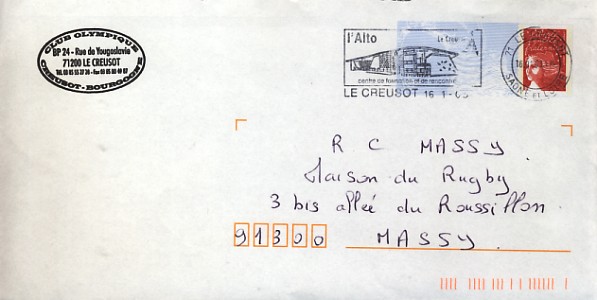 CLUB OLYMPIQUE
BP 24 - Rue de Yougoslavie
71200 LE CREUSOT
CREUSOT-BOURGOGNE
l'Alto
Le Creusot
centre de formation et de rencontre
LE CREUSOT 16-1-03
71 LE CREUSOT
SAONE ET LOIRE
A
R C MASSY
Maison du Rugby
3 bis allée du Roussillon
91300 MASSY